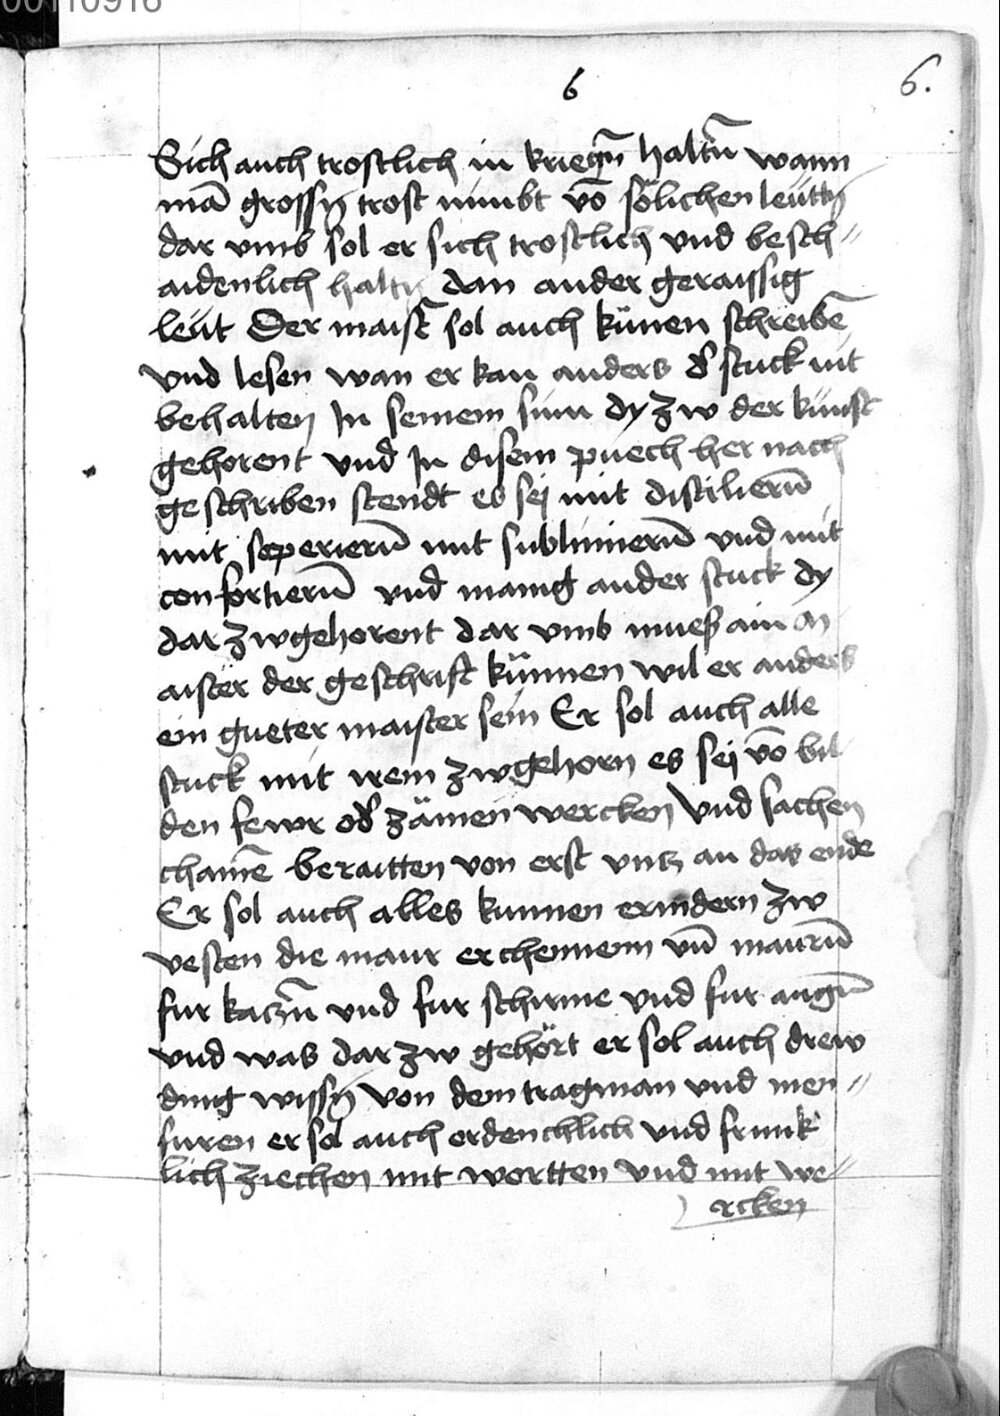 00110916
6 6.
Sich auch trostlich in kriegn̄ haltn̄ wann
mā grossen trost nimbt vō sölichen leütten
dar vmb sol er sich trostlich vnd besch〃
aidenlich halten dan ander geraissig
leüt Der maistr̄ sol auch künen schreibē
vnd lesen wan er kan anders d' stuck nit
behalten In seinem sinn dy zw der kunst
gehorent vnd In disem puech her nach
geschriben stendt es sej mit distilierñ
mit seperierñ mit sublimierñ vnd mit
confortierñ vnd manig ander stuck dy
dar zwgehorent dar vmb mueß ain m
aister der geschrift künnen wil er anders
ein gueter maister sein Er sol auch alle
stuck mit irem zwgehorn es sej vō bil
den fewr od' zämen wercken vnd sachen
chamē beraitten von erst vntz an das ende
Er sol auch alles kunnen erindern zw
vesten die maur erchennenn vn̄ maurñ
fur kaczn̄ vnd fur schirme vnd fur augn̄
vnd was dar zw gehört er sol auch drew
ding wissen von dem tragman vnd men〃
suren er sol auch erdenchlich vnd frunk
lich ziechen mit wortten vnd mit we〃
rcken